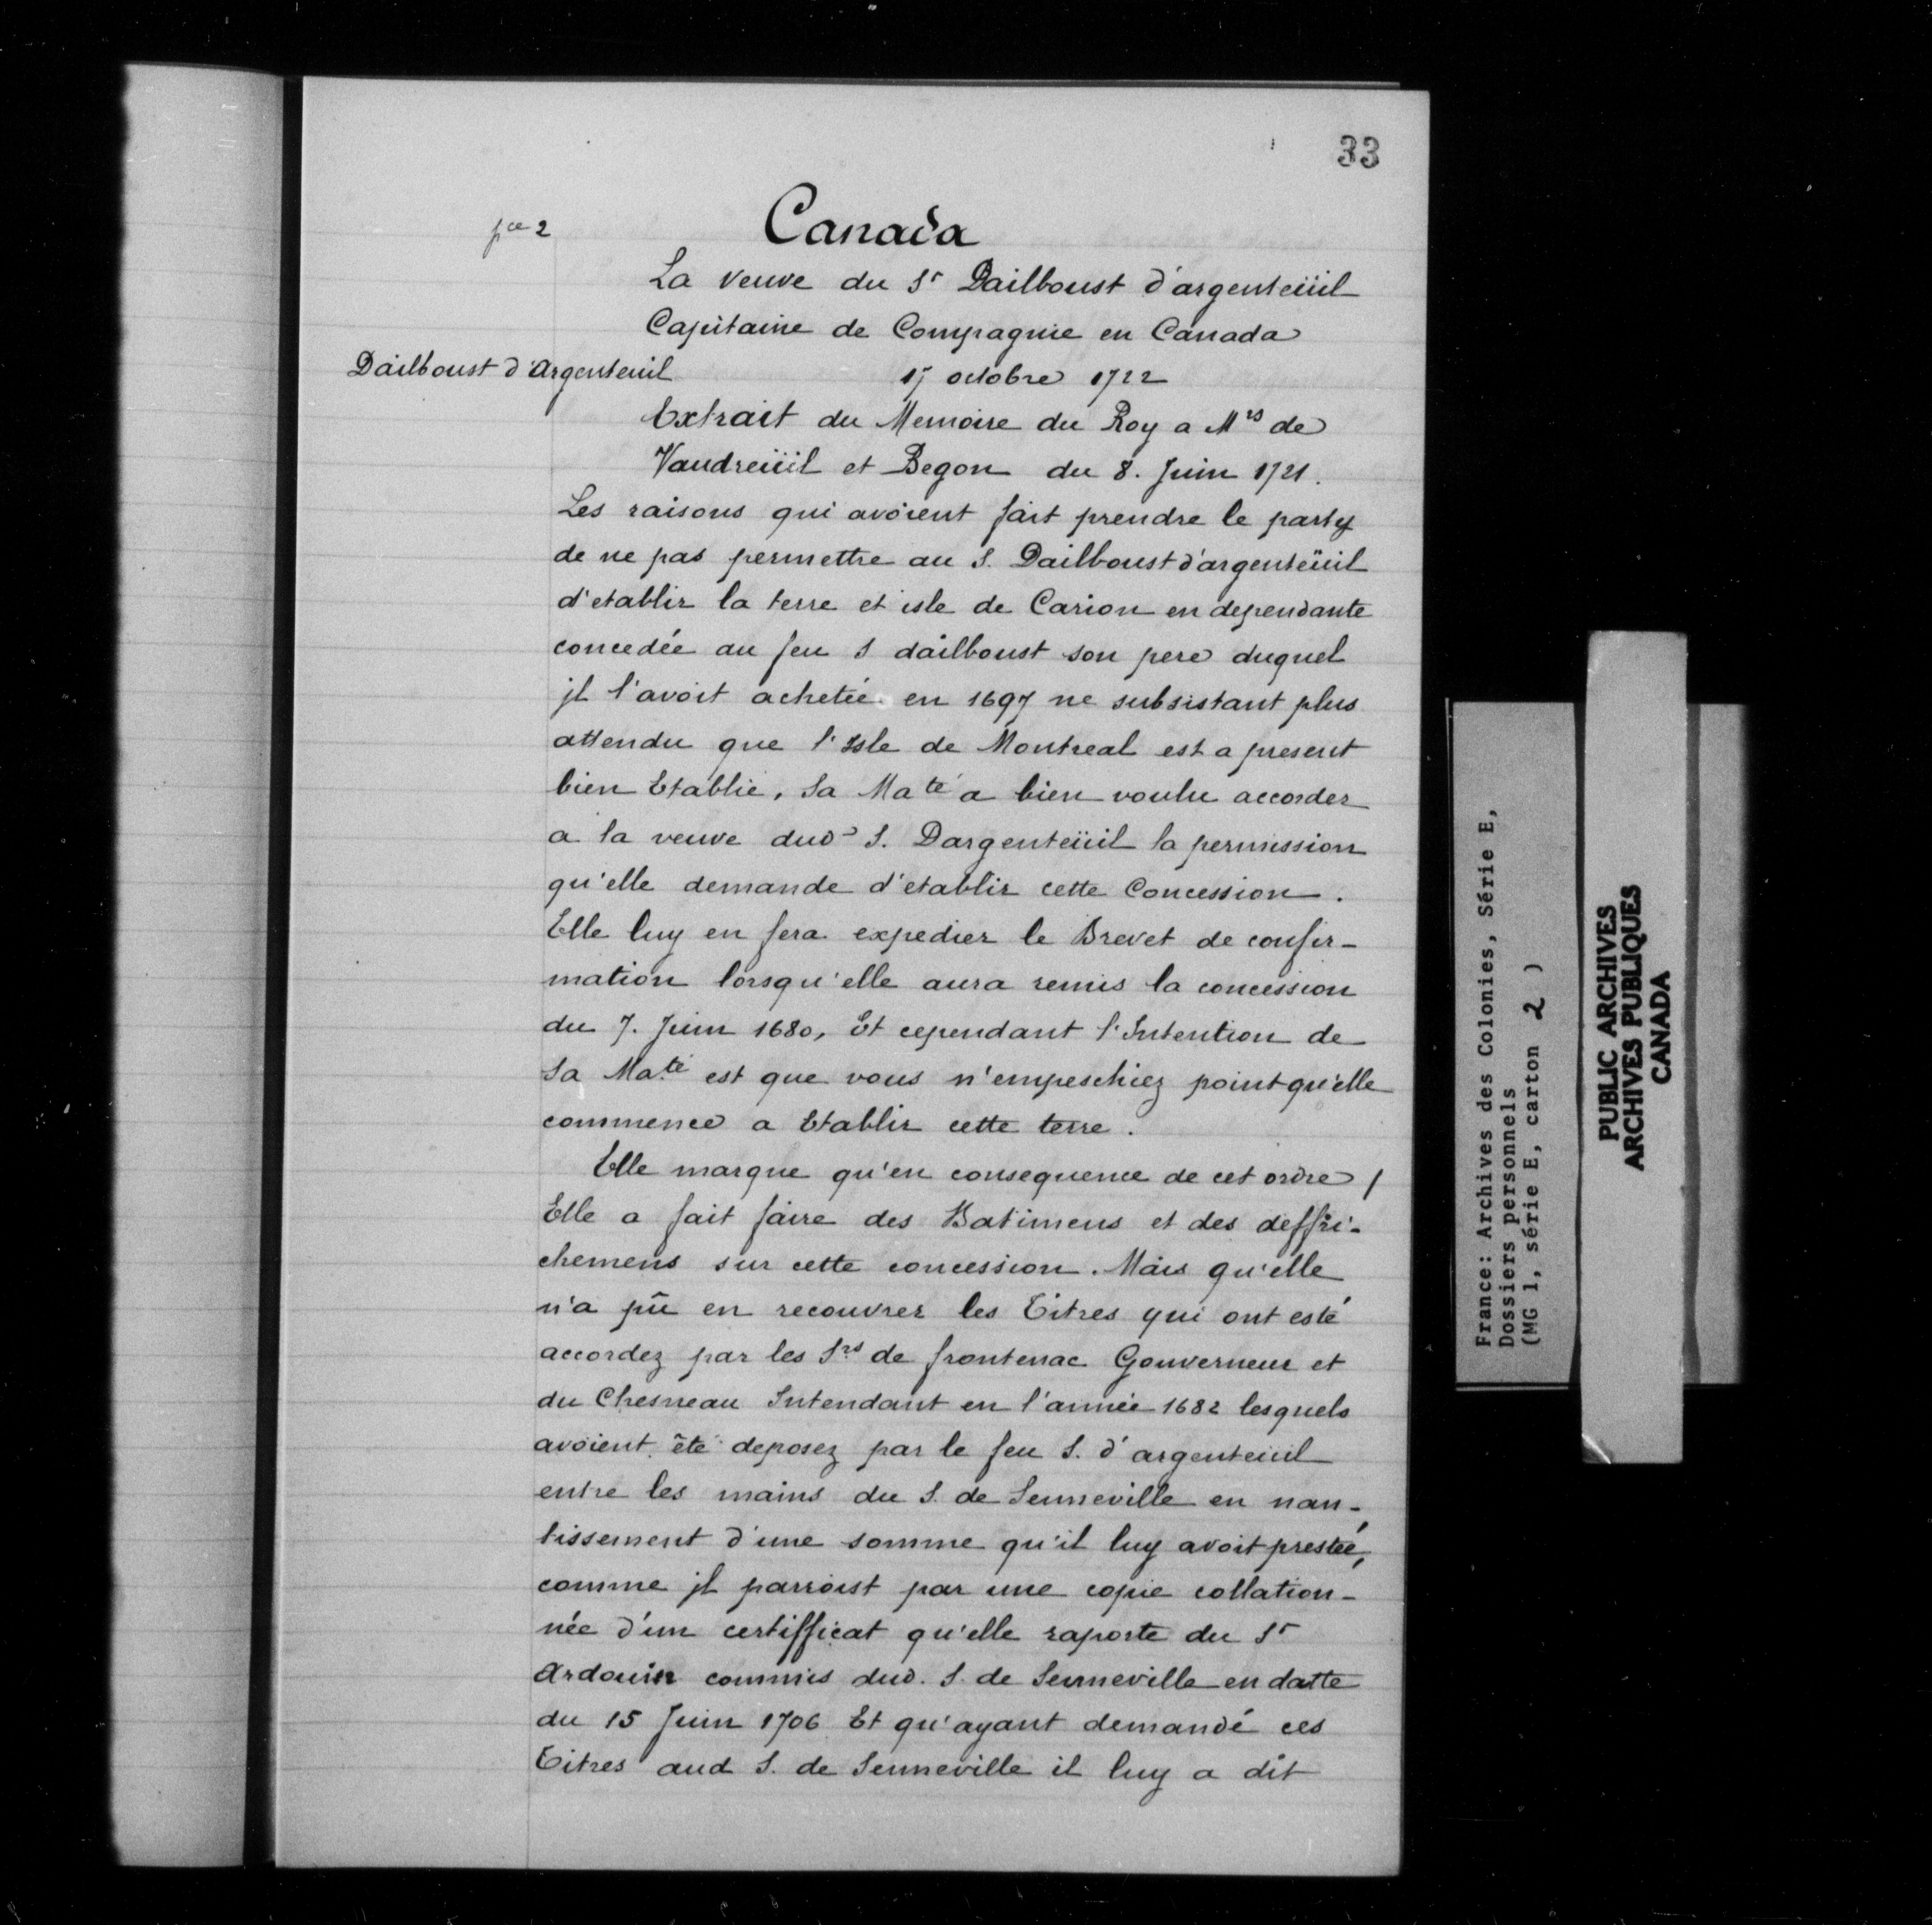 33
pce 2
Canada
La veuve du Sr Dailboust d'argenteüil
Capitaine de Compagnie en Canada
Dailboust d'Argenteuil
17 octobre 1722
Extrait du Memoire du Roy a Mrs de
Vaudreüil et Begon du 8. Juin 1721.
Les raisons qui avoient fait prendre le party
de ne pas permettre au S. Dailboust d'argenteüil
d'etablir la terre et isle de Carion en dependante
concedée au feu S dailboust son pere duquel
jl l'avoit achetée en 1697 ne subsistant plus
attendu que l'Isle de Montreal est a present
bien Etablie, Sa Maté a bien voulu accorder
a la veuve dud S. Dargenteüil la permission
qu'elle demande d'etablir cette Concession.
Elle luy en fera expedier le Brevet de confir-
mation lorsqu'elle aura remis la concession
du 7. Juin 1680, Et cependant l'Intention de
Sa Maté est que vous n'empeschiez point qu'elle
commence a Etablir cette terre.
Elle marque qu'en consequence de cet ordre /
Elle a fait faire des Batimens et des deffri-
chemens sur cette concession. Mais qu'elle
n'a pû en recouvrer les Titres qui ont esté
accordez par les Srs de frontenac Gouverneur et
du Chesneau Intendant en l'année 1682 lesquels
avoient été deposez par le feu S. d'argenteuil
entre les mains du S. de Senneville en nan-
tissement d'une somme qu'il luy avoit prestée,
comme jl parroist par une copie collation-
née d'un certifficat qu'elle raporte du Sr
Ardouin commis dud. S. de Senneville en datte
du 15 Juin 1706 Et qu'ayant demandé ces
Titres aud S. de Senneville il luy a dit
France: Archives des Colonies, Série E,
Dossiers personnels
(MG 1, série E, carton 2 )
PUBLIC ARCHIVES
ARCHIVES PUBLIQUES
CANADA